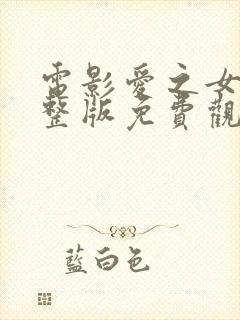 電影愛之女
整版免費觀
藍白色